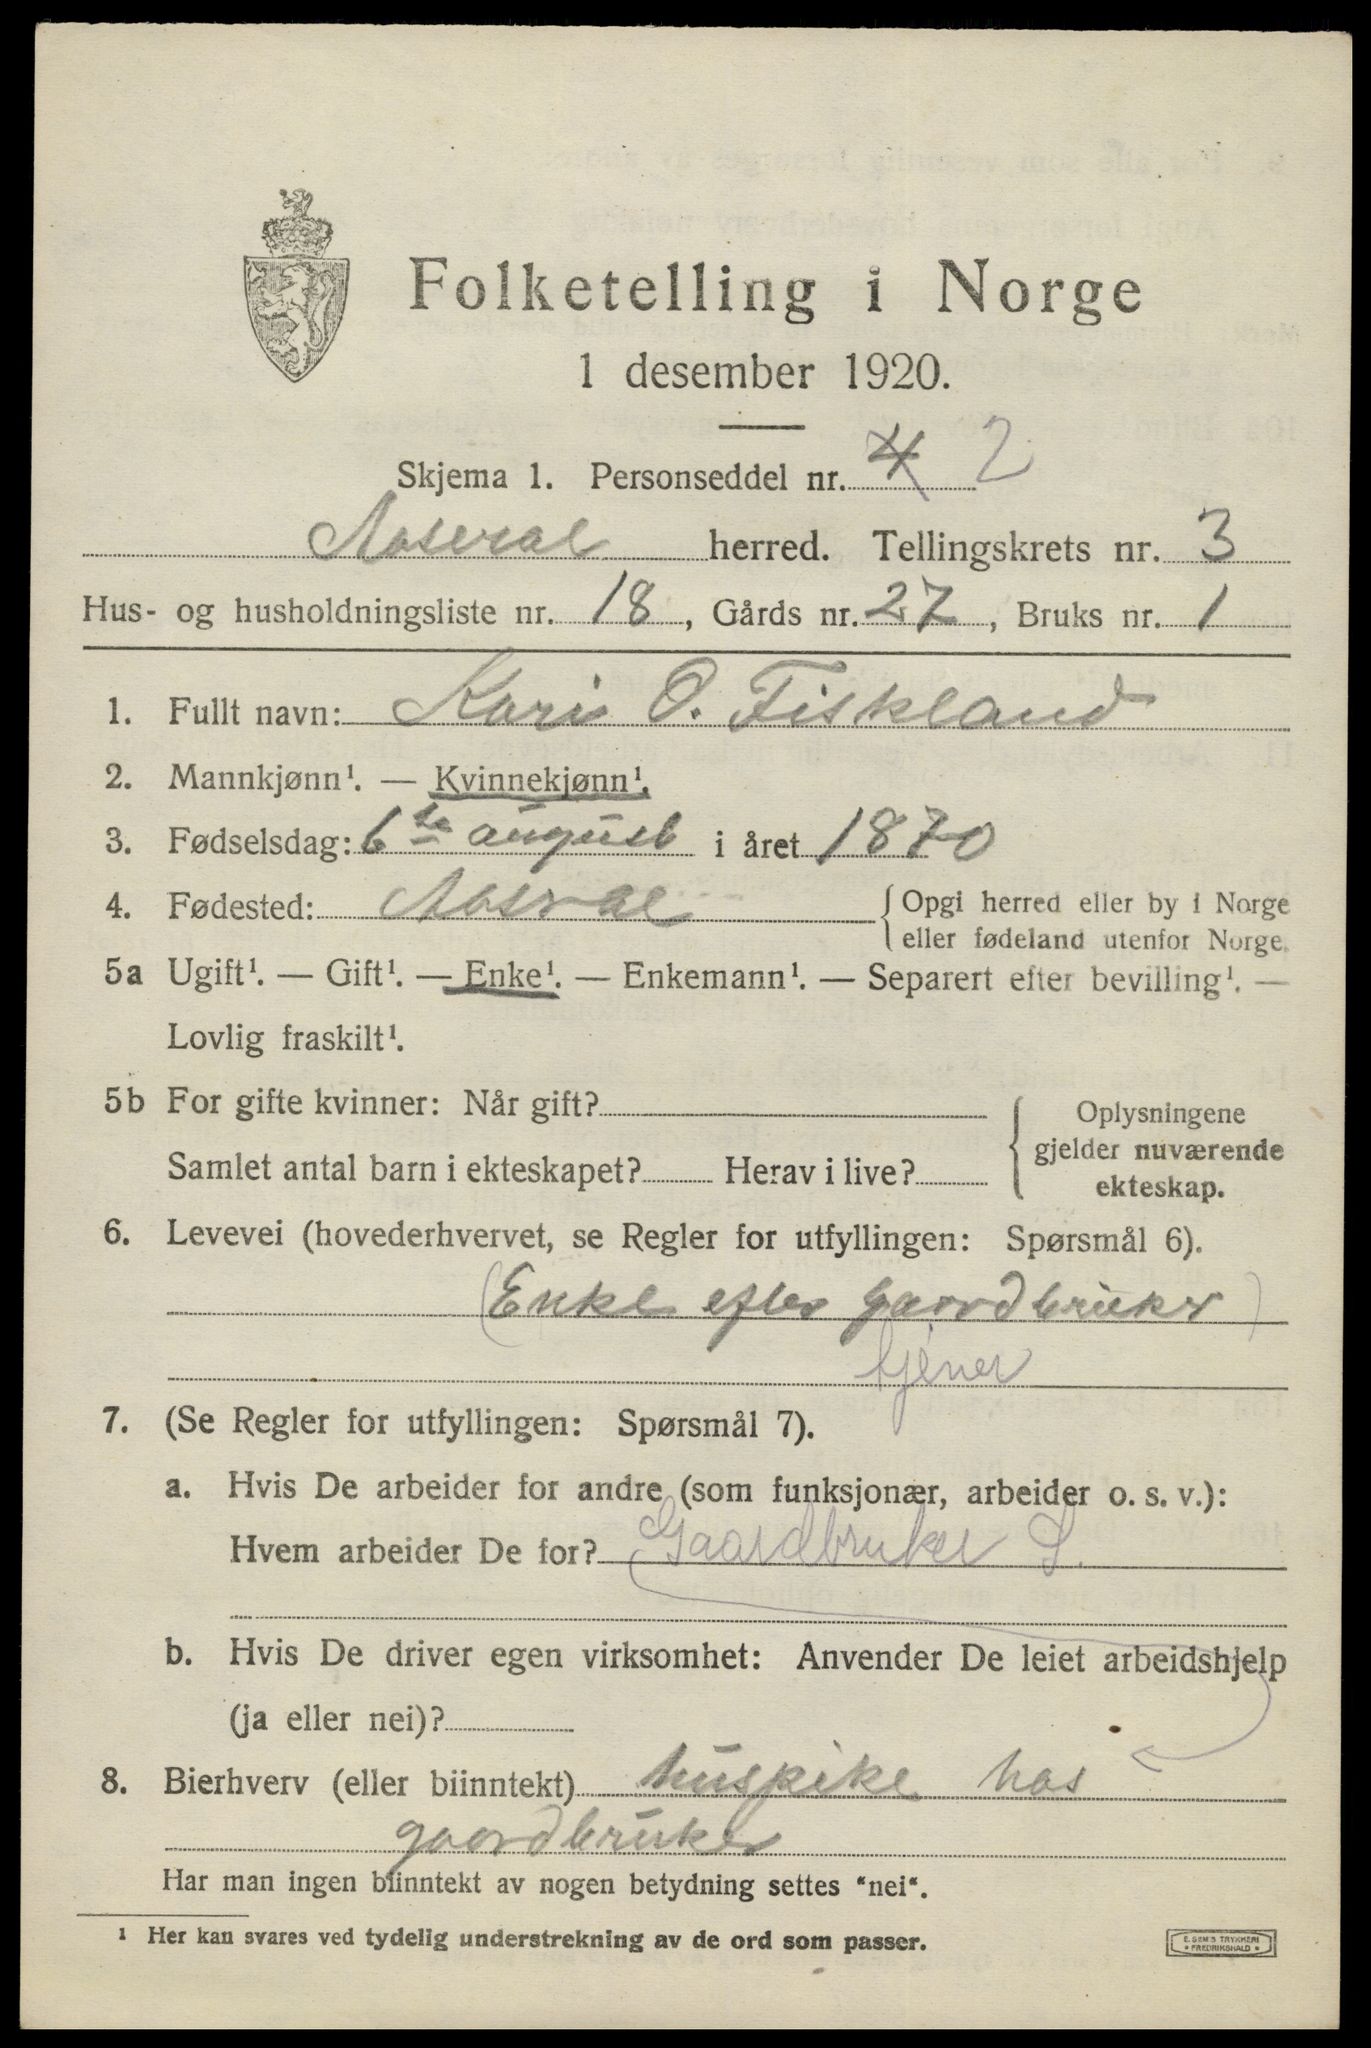 Folketelling i Norge
1 desember 1920.
Skjema 1. Personseddel nr. 4 2
Aaseral herred. Tellingskrets nr. 3
Hus- og husholdningsliste nr. 18, Gårds nr. 27, Bruks nr. 1
1. Fullt navn: Kari O. Fiskland
2. Mannkjønn¹. — Kvinnekjønn¹.
3. Fødselsdag: 6te august i året 1870
4. Fødested: Aasral { Opgi herred eller by i Norge
eller fødeland utenfor Norge.
5a Ugift¹. — Gift¹. — Enke¹. — Enkemann¹. — Separert efter bevilling¹. —
Lovlig fraskilt¹.
5b For gifte kvinner: Når gift? { Oplysningene
gjelder nuværende
ekteskap.
Samlet antal barn i ekteskapet? Herav i live?
6. Levevei (hovederhvervet, se Regler for utfyllingen: Spørsmål 6).
(Enke efter Gaardbruker)
tjener
7. (Se Regler for utfyllingen: Spørsmål 7).
a. Hvis De arbeider for andre (som funksjonær, arbeider o. s. v.):
Hvem arbeider De for? Gaardbruker S.
b. Hvis De driver egen virksomhet: Anvender De leiet arbeidshjelp
(ja eller nei)?
8. Bierhverv (eller biinntekt) huspike hos
gaardbruker
Har man ingen biinntekt av nogen betydning settes "nei".
¹ Her kan svares ved tydelig understrekning av de ord som passer.
E. SEM'S TRYKKERI
• FREDRIKSHALD •